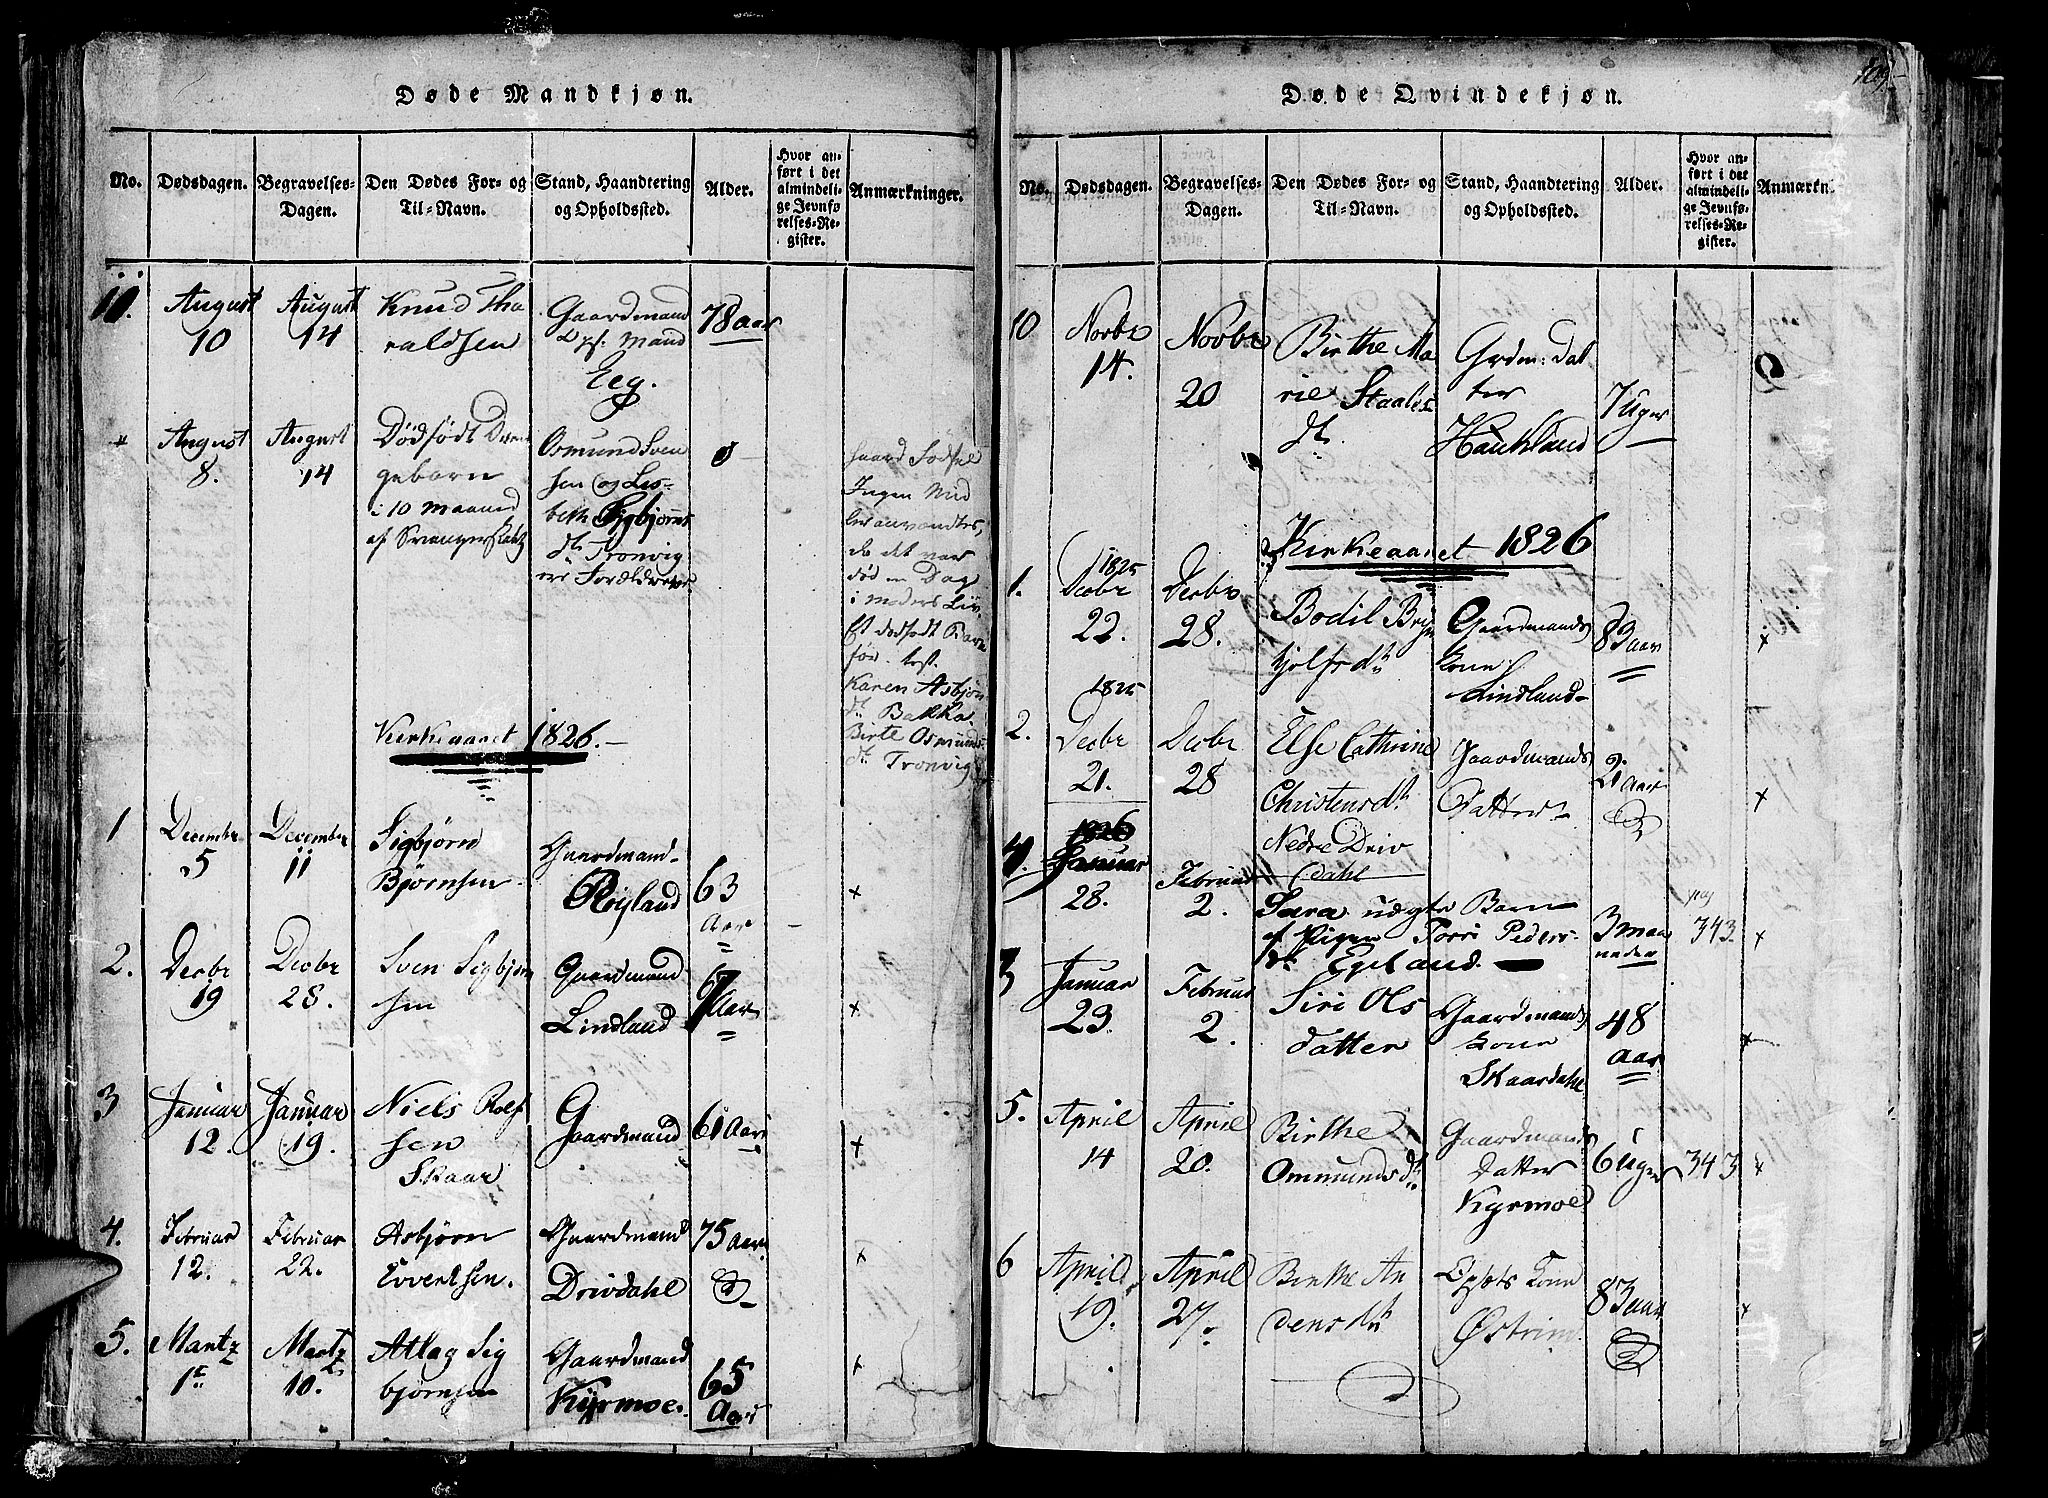 Døde Mandkjøn.
No.
Dødsdagen.
Begravelses-
Dagen.
Den Dødes For- og
Til-Navn.
Stand, Haandtering
og Opholdssted.
Alder.
Hvor an-
ført i det
almindeli-
ge Jevnfø-
relses-Re-
gister.
Anmærkninger.
11.
August
10
August
14
Knud Tha
raldsen
Gaardmand
Mand
Eeg.
78 aar
August
8.
August
14
Dødfødt Dren
gebarn
i 10 Maaned
af Svangerskab
Osmund Sven
sen og Lis-
beth Sigbjørns
dt. Tronvig
ere Forældrene
haard Fødsel
Ingen Mid
ler anvendtes,
da det var
død en Dag
i Moders Liv.
Et dødfødt Barn
før. test.
Karen Asbjørn
dt. Bakka.
Birte Osmunds
dt. Tronvig
Kirkeaaret 1826.
1
December
5
December
11
Sigbjørn
Bjørnsen
Gaardmand
Røysland
63
Aar
2.
Decbr
19
Decbr
28.
Sven Sigbjørn
sen
Gaardmand
Lindland
67
Aar
3
Januar
12.
Januar
19.
Niels Rolf
sen
Skaar
Gaardmand
61 Aar
4.
Februar
12.
Februar
22.
Asbjørn
Evertsen.
Gaardmand
Drivdahl
75 Aar
5.
Martz
1te
Martz
10.
Atlag Sig
bjørnsen
Gaardmand
Kyrmoe.
65
Aar
Døde Qvindekjøn.
109
No.
Dødsdagen.
Begravelses-
Dagen.
Den Dødes For- og
Til-Navn.
Stand, Haandtering
og Opholdssted.
Alder.
Hvor an-
ført i det
almindeli-
ge Jevnfø-
relses-Re-
gister.
Anmærkn.
10
Novbr
14.
Novbr
20
Birthe Ma
rie Staales
dt.
Grdm: Dat
ter
Haukland
7 Uger
Kirkeaaret 1826
1.
1825
Decbr
22.
Decbr
28.
Bodil Bryn
jolfs dtr
Gaardmands
kone
Lindland
83 aar
2.
1825
Decbr
21.
Decbr
28
Else Cathrine
Christensdt.
Nedre Driv
dahl
Gaardmands
Datter
2 Aar
4.
1826
Januar
28.
Februar
2.
Sara uægte Barn
af Pigen Torri Peders
dt. Egeland.
3 maa
neder
pag
343.
3
Januar
23.
Februar
2.
Siri Ols
datter
Gaardmands
kone
Skaardahl
48
Aar
5.
April
14
April
20.
Birthe
Ommundsdt.
Gaardmands
datter
Kyrmoe
6 Uger
343
6
April
19.
April
27.
Birthe An
densdtr
Kone
Østrim.
83 aar